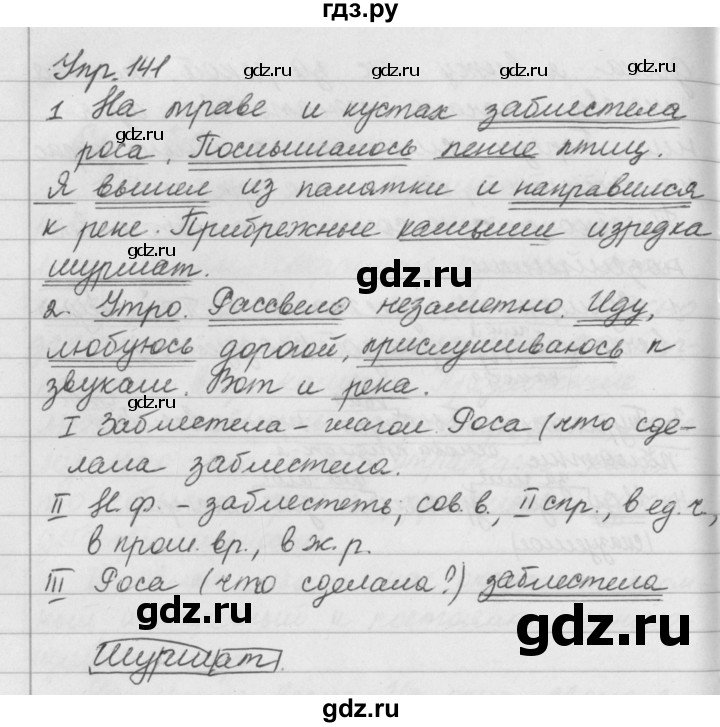 гдз.ру
Упр. 141
gdz.ru gdz.ru
1 На траве и кустах заблестела
gdz.ru
роса. Послышалось пение птиц.
gdz.ru
Я вышел из палатки и направился
gdz.ru gdz.ru
к реке. Прибрежные камыши изредка
шуршат.
gdz.ru gdz.ru
2. Утро. Рассвело незаметно. Иду,
любуюсь дорогой, прислушиваюсь к
gdz.ru
звукам. Вот и река.
gdz.ru
I Заблестела – глагол. Роса (что сде-
gdz.ru
лала заблестела.
gdz.ru
II Н.ф. – заблестеть, сов. в, II спр., в ед. ч.,
в прош. вр., в ж. р.
gdz.ru
III Роса (что сделала?) заблестела
gdz.ru
Шуршат.
gdz.ru
gdz.ru